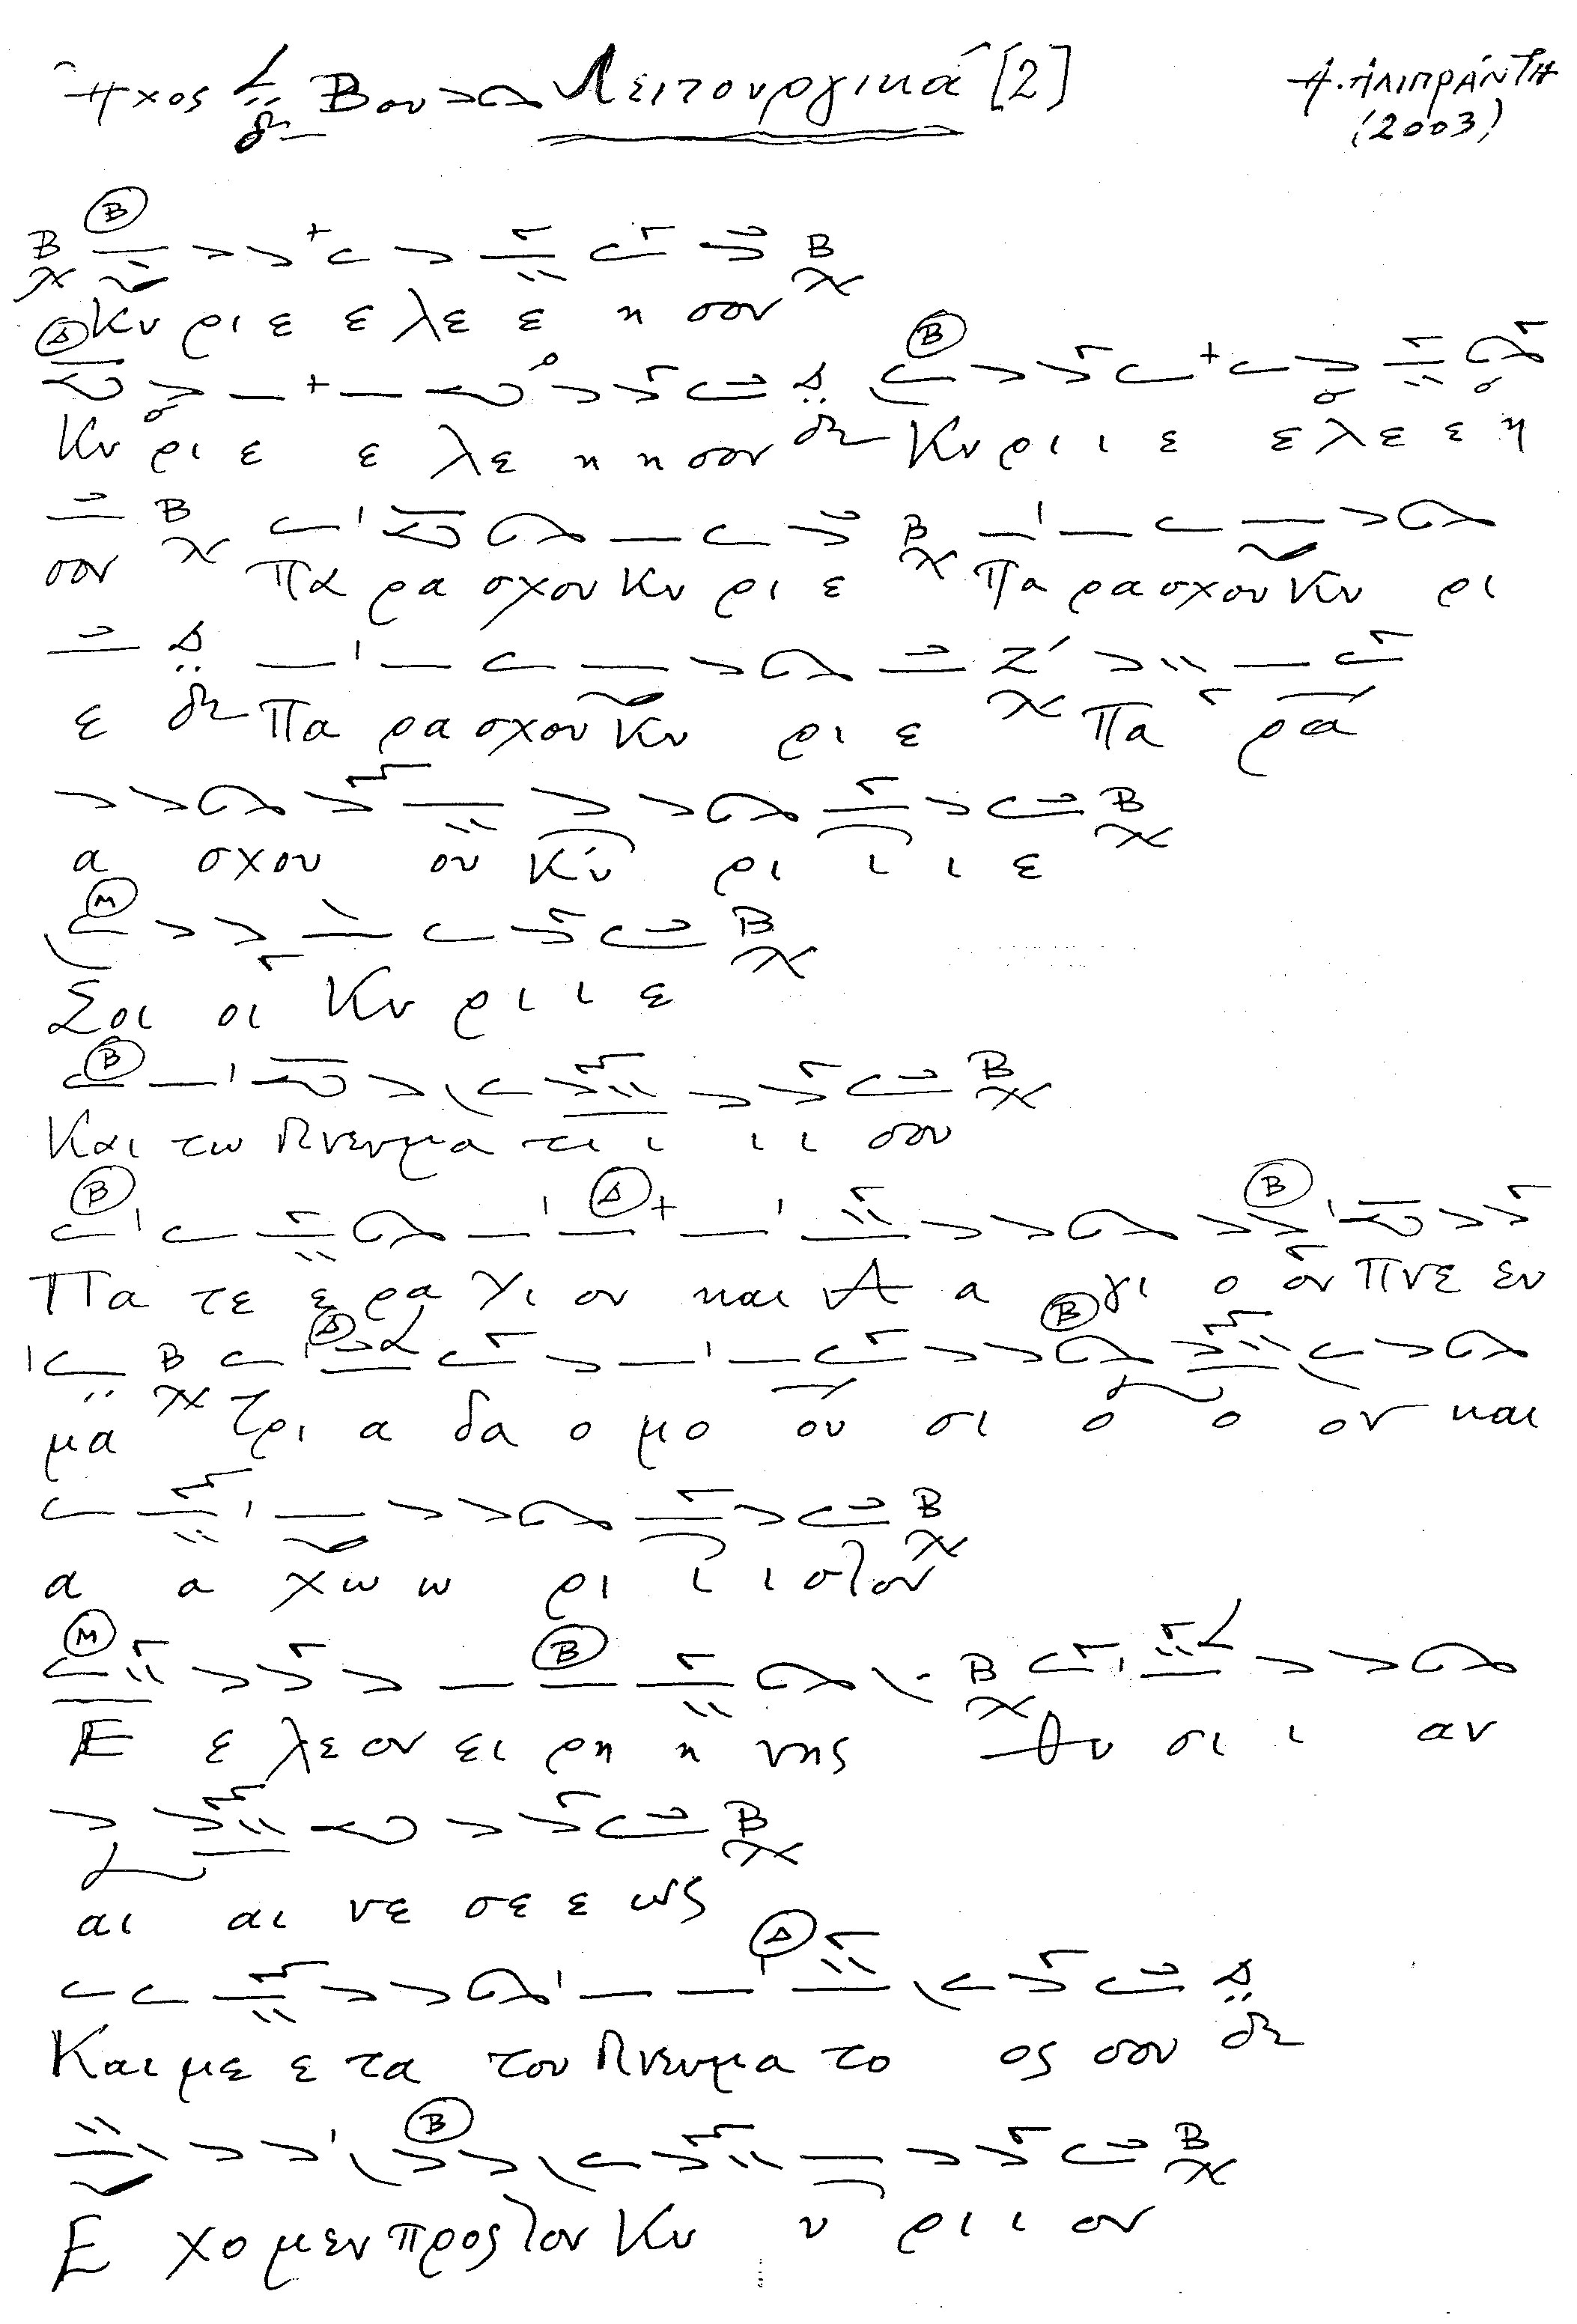 Ἦχος Βου Λειτουργικά [2] Α. ΑΛΙΠΡΑΝΤΗ
(2003)
Κυ ρι ε ε λε ε η σον
Κυ ρι ε ε λε η η σον Κυ ρι ι ε ε λε ε η
σον Πα ρα σχου Κυ ρι ε Πα ρα σχου Κυ ρι
ε Πα ρα σχου Κυ ρι ε Πα ρα
α σχου ου Κυ ρι ι ι ε
Σοι οι Κυ ρι ι ε
Και τω Πνευμα τι ι ι ι σου
Πα τε ε ρα Υι ον και Α α γι ο ον Πνε ευ
μα Τρι α δα ο μο ου σι ο ο ον και
α α χω ω ρι ι ι στον
Ε ε λε ον ει ρη η νης Θυ σι ι αν
αι αι νε σε ε ως
Και με ε τα του Πνευμα το ος σου
Ε χο μεν προς τον Κυ υ ρι ι ον